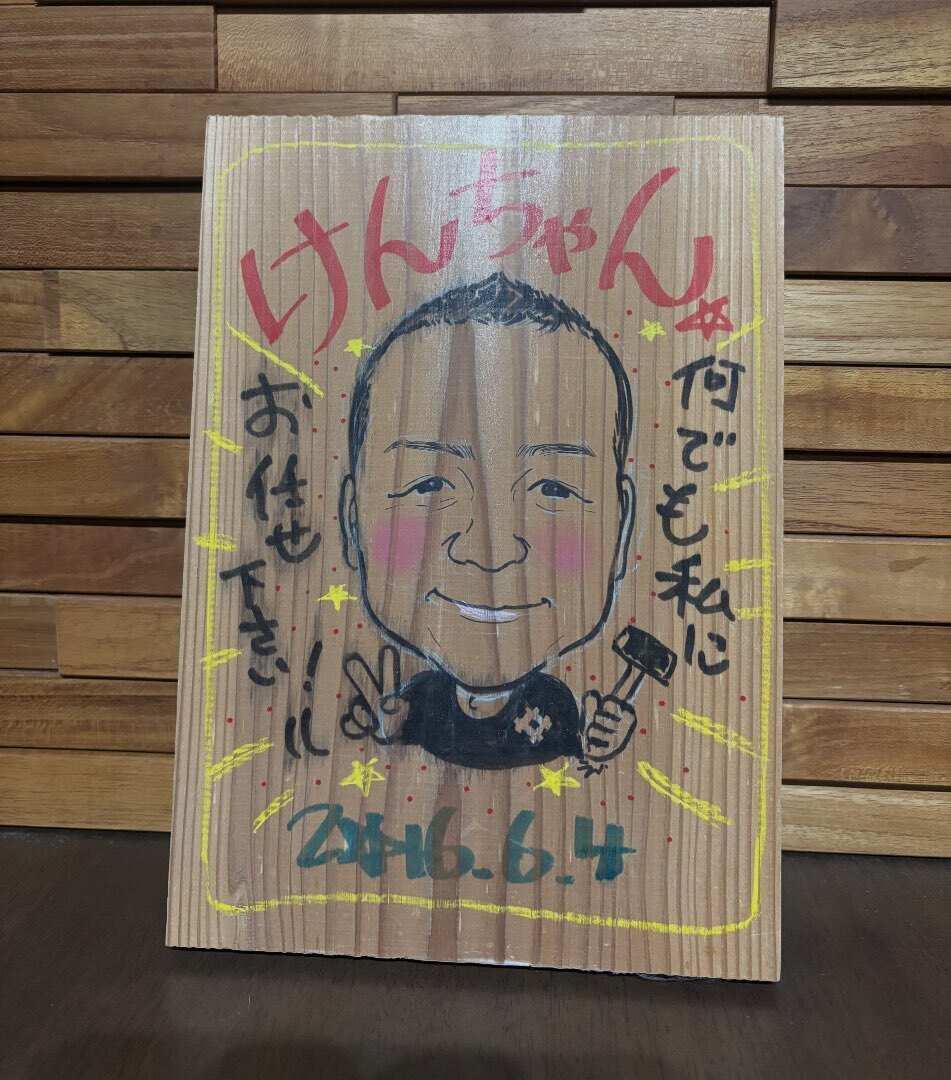 けんちゃん
何でも私に
お任せ
下さい!!
2016.6.4